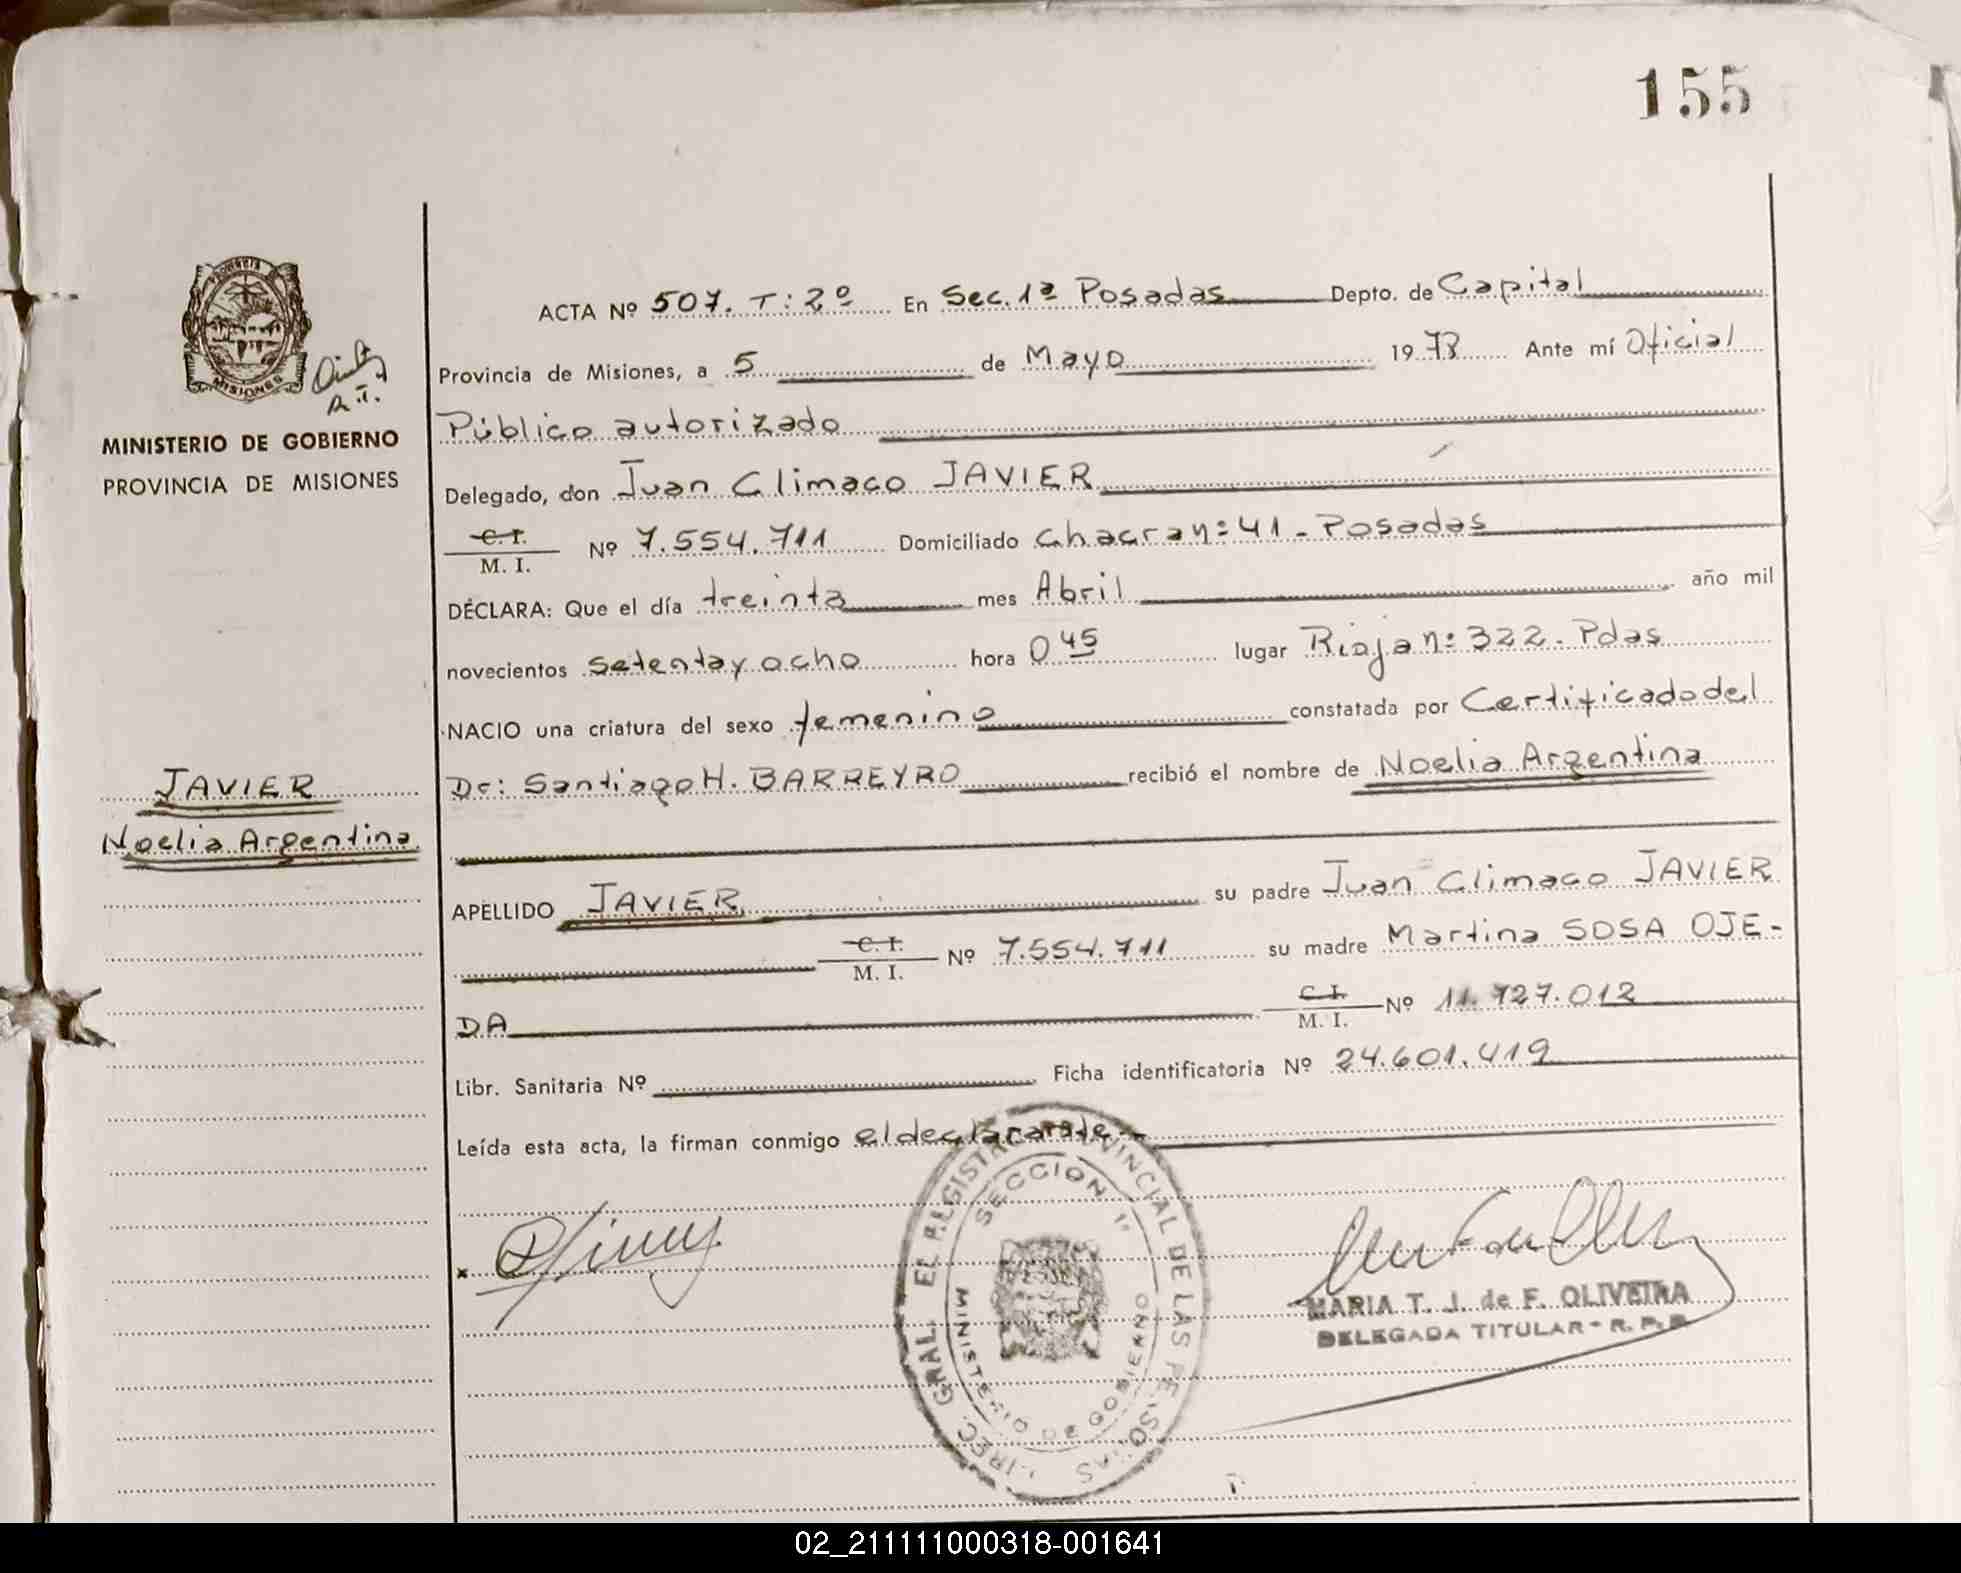 155
PROVINCIA
MISIONES
MINISTERIO DE GOBIERNO
PROVINCIA DE MISIONES
ACTA Nº 507. T: 2º En Sec. 1ª Posadas Depto. de Capital
Provincia de Misiones, a 5 de Mayo 1978 Ante mí Oficial
Público autorizado
Delegado, don Juan Climaco JAVIER
C. I.
M. I. Nº 7.554.711 Domiciliado chacra n: 41 - Posadas
DECLARA: Que el día treinta mes Abril año mil
novecientos setenta y ocho hora 0 45 lugar Rioja n: 322 - Pdas
NACIO una criatura del sexo femenino constatada por Certificado del
Dr: Santiago H. BARREYRO recibió el nombre de Noelia Argentina
JAVIER
Noelia Argentina
APELLIDO JAVIER su padre Juan Climaco JAVIER
C. I.
M. I. Nº 7.554.711 su madre Martina SOSA OJE-
DA C. I.
M. I. Nº 11.727.012
Libr. Sanitaria Nº Ficha identificatoria Nº 24.601.419
Leída esta acta, la firman conmigo el declarante -
DIREC. GRAL. EL REGISTRO PROVINCIAL DE LAS PERSONAS
SECCION 1ª
MINISTERIO DE GOBIERNO
x
MARIA T. J. de F. OLIVEIRA
DELEGADA TITULAR - R. P. P.
02_211111000318-001641